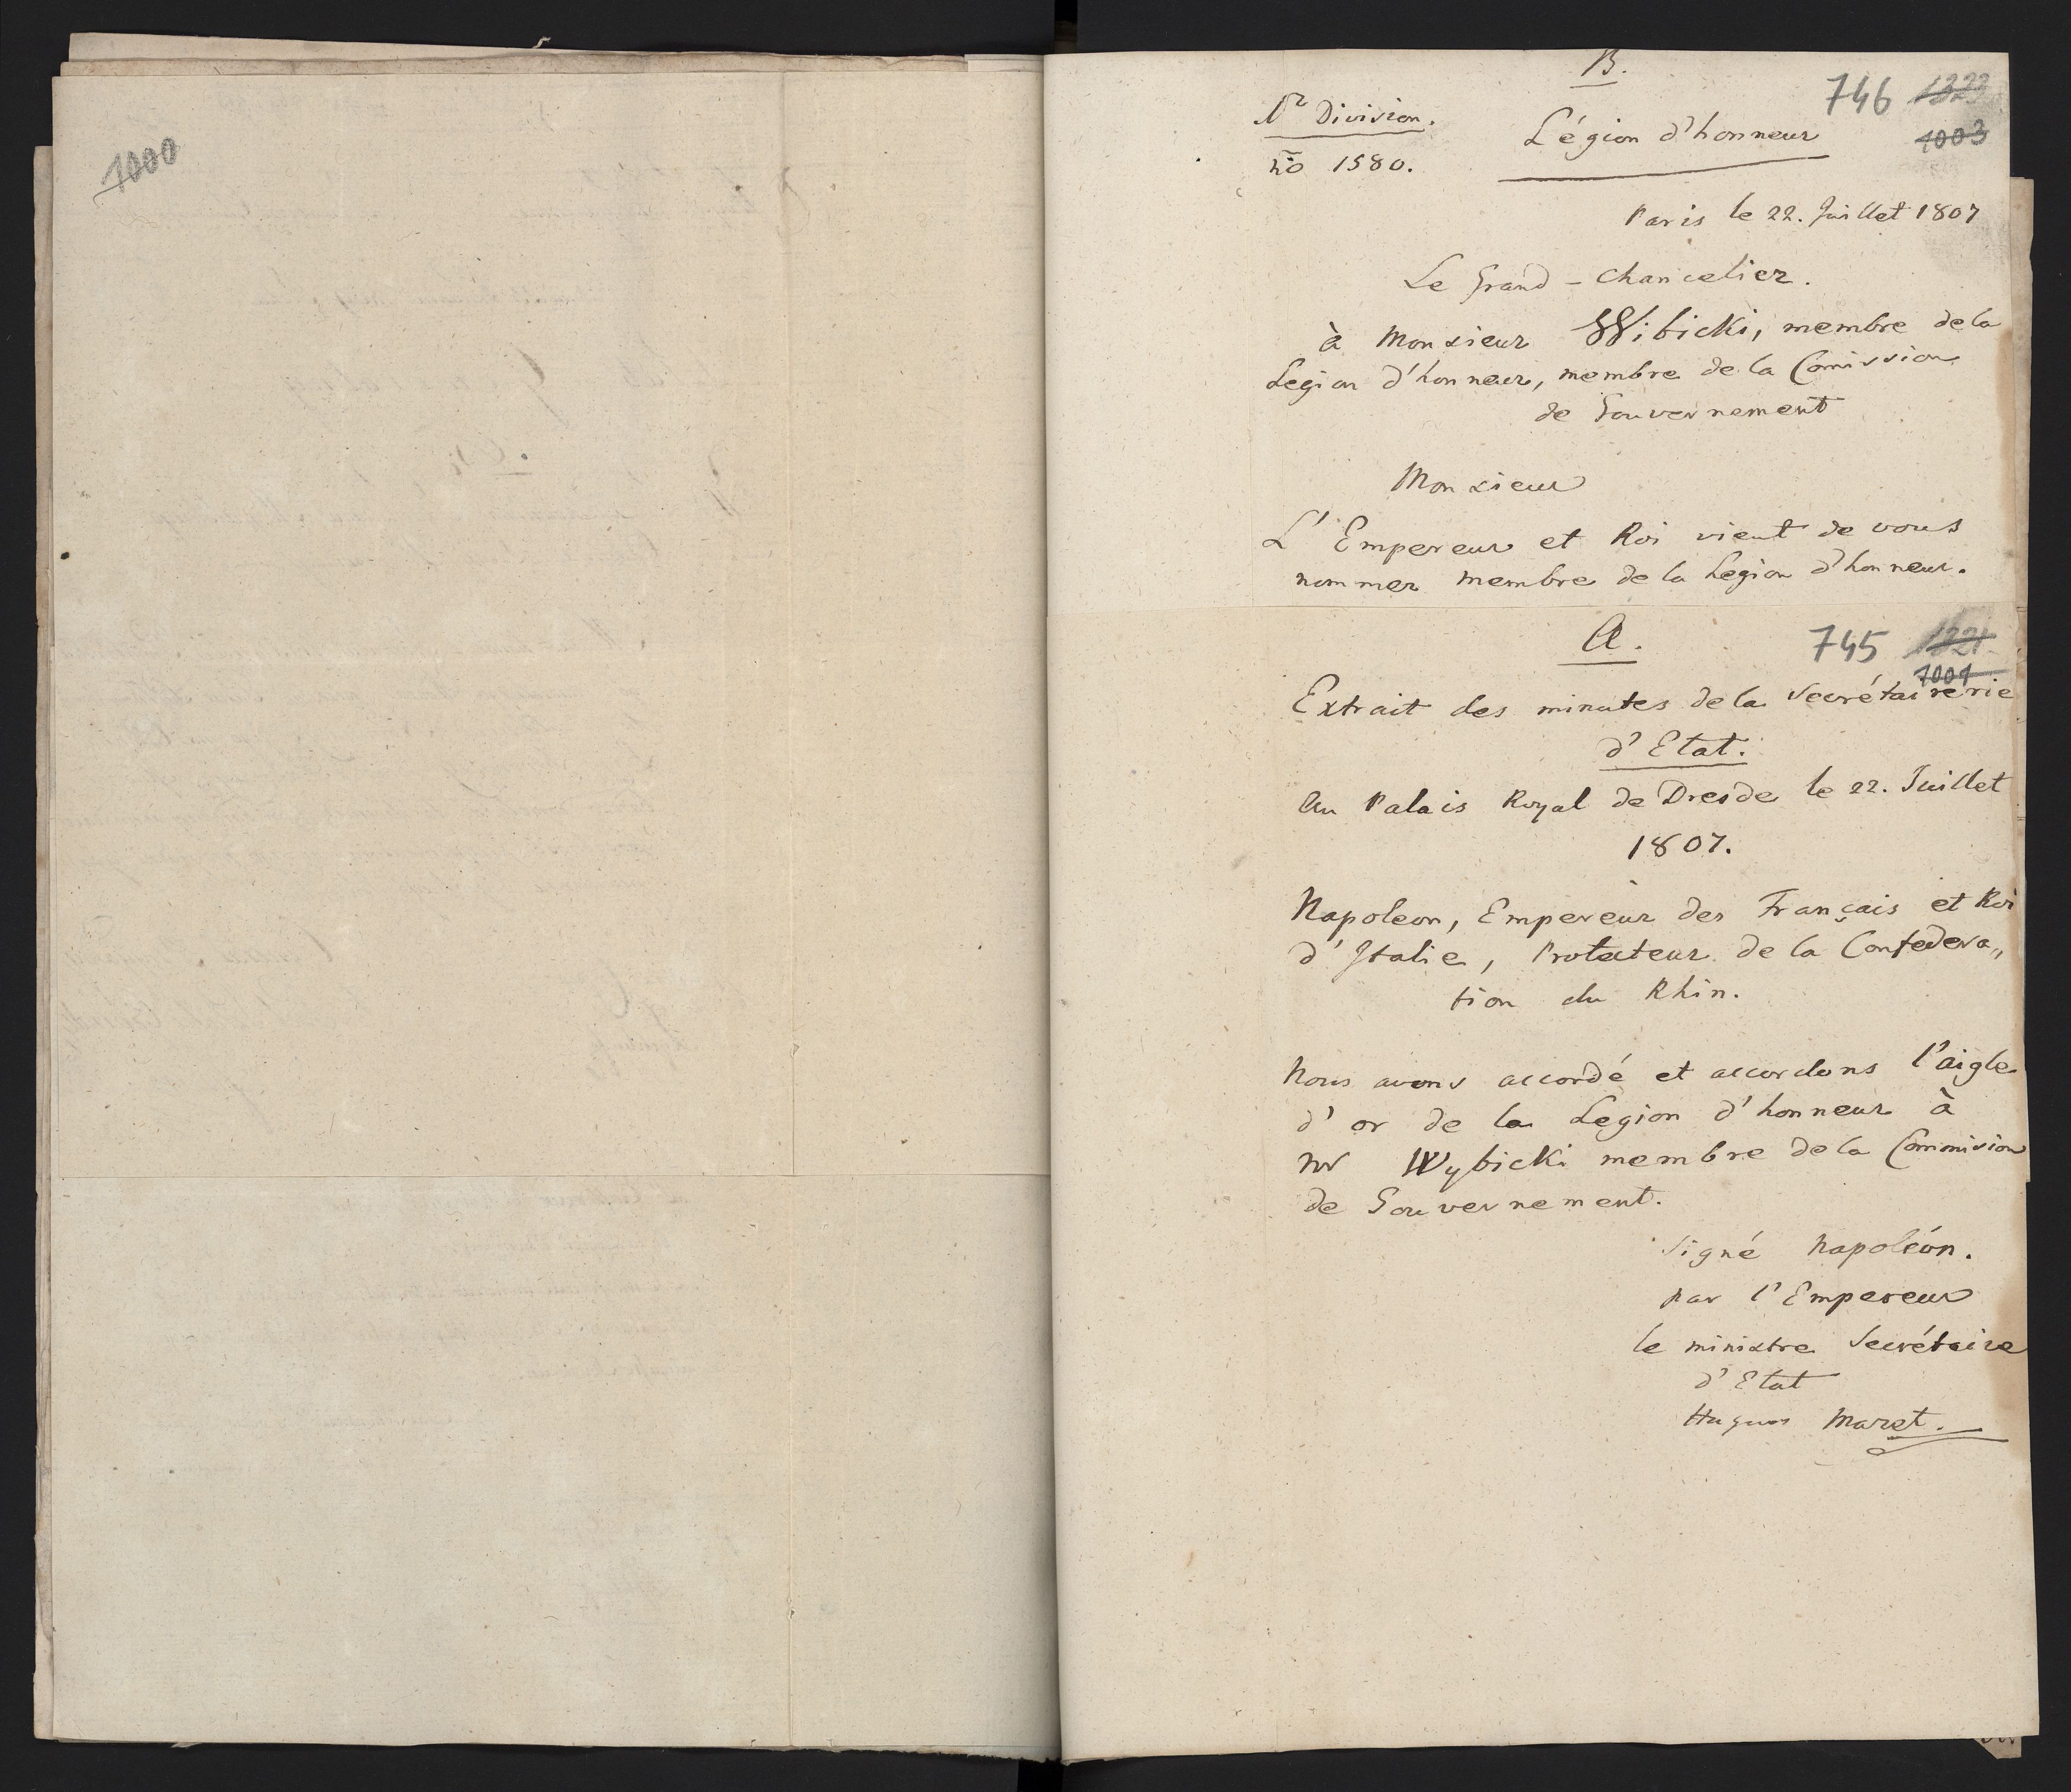 1000
B.
746 1323
1003
1r Division.
Légion d'honneur
no 1580.
Paris le 22. Juillet 1807
Le Grand - Chancelier.
à Monsieur Wibicki, membre de la
Legion d'honneur, membre de la Comission
de Gouvernement
Monsieur
L'Empereur et Roi vient de vous
nommer membre de la Legion d'honneur.
A.
745 1321
1001
Extrait des minutes de la Secrétairerie
d'Etat.
Au Palais Royal de Dresde le 22. Juillet
1807.
Napoleon, Empereur des Français et Roi
d'Italie, Protecteur de la Confedera„
tion du Rhin.
Nous avons accordé et accordons l'aigle
d'or de la Legion d'honneur à
Mr Wybicki membre de la Commision
de Gouvernement.
Signé Napoléon.
par l'Empereur
le ministre Secrétaire
d'Etat
Hugues Maret.